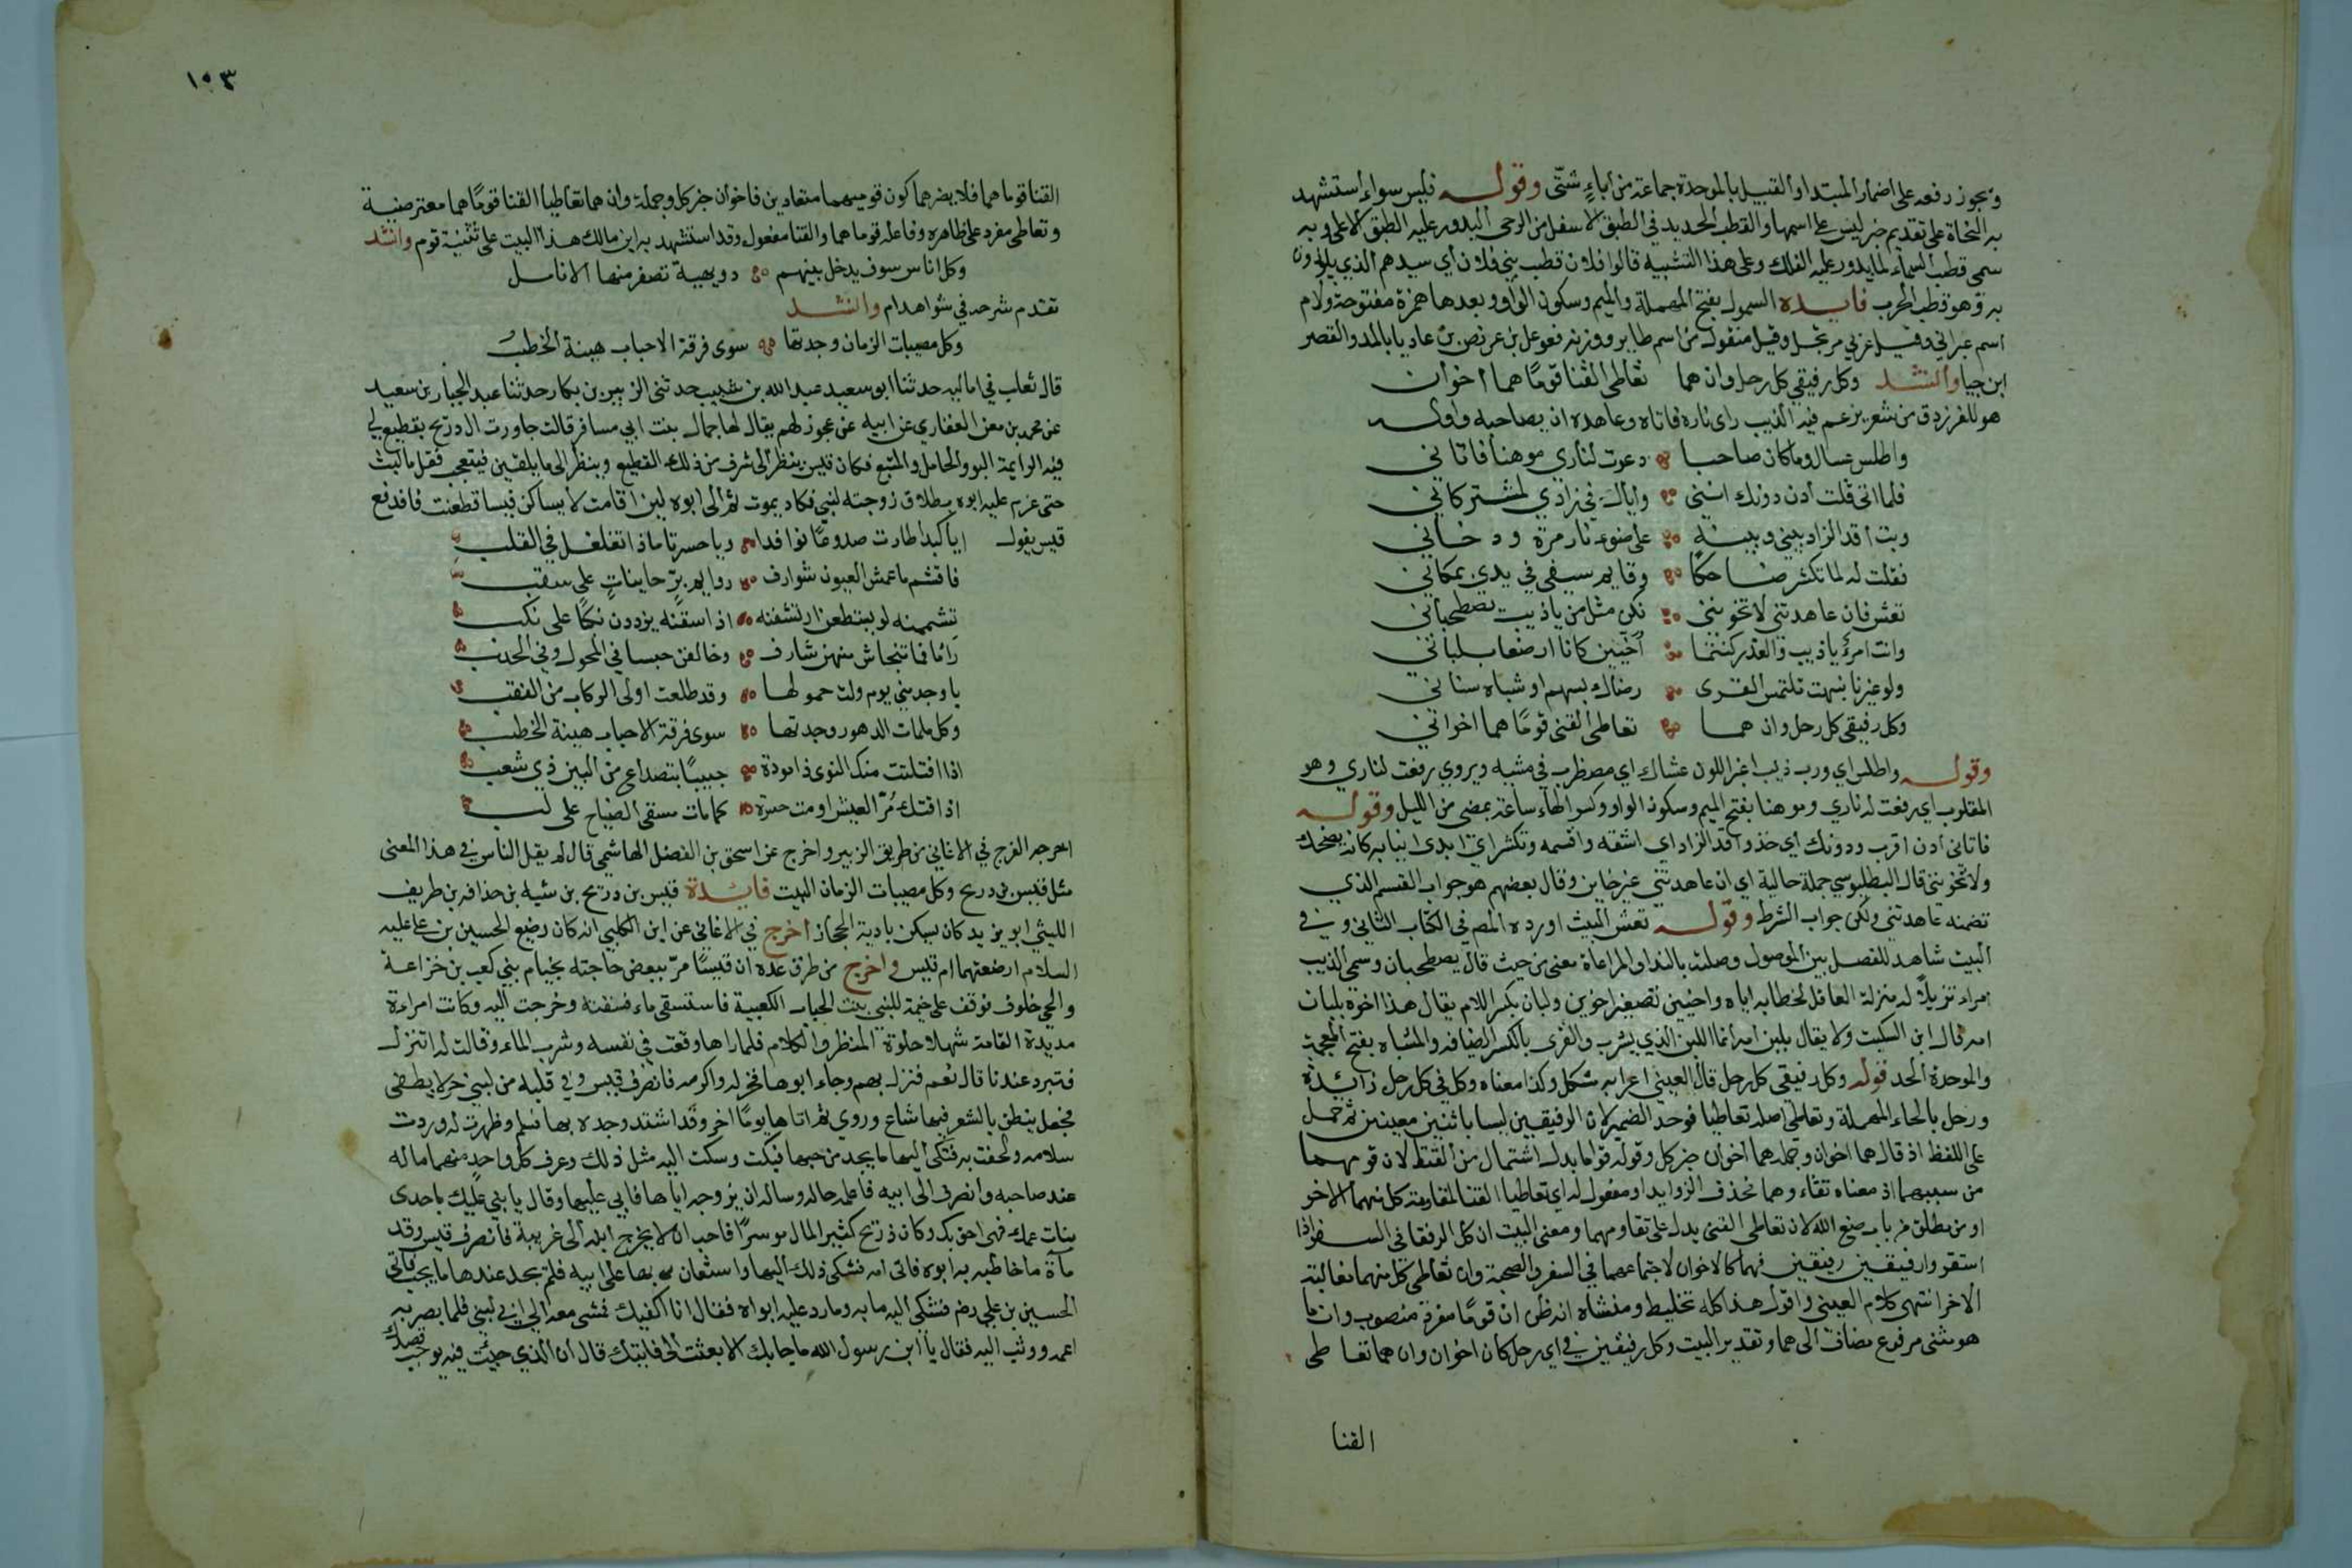 ونجوز رفعه على اضمار المبتدا والقبيل بالموحدة جماعة من اباءٍ شتّى وقوله فليس سواء استشهد
به النحاة على تقديم خبر ليس على اسمها والقطب الحديد في الطبق الاسفل من الرحى اليدور عليه الطبق الاعلى وبه
سمى قطب السماء لما يدور عليه الفلك وعلى هذا التشبيه قالوا فلان قطب بني فلان أي سيدهم الذي يلوذون
به وهو قطب الحرب فايده السموأل بفتح المهملة والميم وسكون الواو وبعدها همزة مفتوحة ولام
اسم عبراني وقيل عربي مرتجل وقيل منقول من اسم طاير ووزنه فعوعل بن عريض بن عاديا بالمد والقصر
ابن حيا وانشد وكل رفيقي كل رحل وان هما تعاطى القنا قومًا هما اخوان
هو للفرزدق من شعر يزعم فيه الذيب راى ناره فاتاه وعاهده ان يصاحبه واوله
واطلس عسال وما كان صاحبا دعوت لناري موهنا فاتاني
فلما اتى قلت أدن دونك انني واياك في زادي لمشتركاني
وبت اقد الزاد بيني وبينه على ضوء نار مرة ودخاني
فقلت له لما تكشر ضاحكًا وقايم سيفي في يدي بمكاني
تعش فان عاهدتني لا تخونني نكن مثل من ياذيب يصطحباني
وانت امرؤ ياذيب والغدر كنتما أُخَيّين كانا ارضعا بلباني
ولو غيرنا نبهت تلتمس القرى رماك بسهم او شباه سناني
وكل رفيقي كل رحل وان هما تعاطى القنى قومًا هما اخواني
وقوله واطلس اي ورب ذيب اغبر اللون عسال اي مضطرب في مشيه ويروي رفعت لناري وهو
المقلوب اي رفعت له ناري وموهنا بفتح الميم وسكون الواو وكسر الهاء ساعة بمضى من الليل وقوله
فاتانى أدن اقرب ودونك اي خذ واقد الزاد اي اشقه واقسمه وتكشر اي ابدى انيابه كانه يضحك
ولا تخونني قال البطليوسي جملة حالية اي ان عاهدتني غير خاين وقال بعضهم هو جواب القسم الذي
تضمنه عاهدتني ونكن جواب الشرط وقوله تعش البيت اورده المص في الكتاب الثاني وفي
البيت شاهد للفصل بين الموصول وصلته بالندا والمراعاة معنى من حيث قال يصطحبان وسمى الذيب
امراء تنزيلًا له منزلة العاقل لخطابه اياه واخيين تصغير اخوين ولبان بكسر اللام يقال هذا اخوه بلبان
امه قال ابن السكيت ولا يقال بلبن امه انما اللبن الذي يشرب والقرى بالكسر الضيافه والشباه بفتح المعجمة
والموحدة الحد قوله وكل رفيقي كل رحل قال العيني اعرابه مشكل وكذا معناه وكل في كل رحل زائدة
ورحل بالحاء المهملة وتعاطى اصله تعاطيا فوحد الضمير لان الرفيقين ليسا باثنين معينين ثم حمل
على اللفظ اذ قال هما اخوان وجملة هما اخوان خبر كل وقوله قوما بدل اشتمال من القنا لان قومهما
من سببهما اذ معناه تقاء وهما نحذف الزوايد او مفعول له اي تعاطيا القنا المقاومة كل منهما الاخر
او من مطلق من باب صنع الله لان تعاطى القنى يدل على تقاومهما ومعنى البيت ان كل الرفقا في السفر اذا
استقروا رفيقين رفيقين فهما كالاخوان لاجتماعهما في السفر والصحبة وان تعاطى كل منهما مغالبة
الاخر انتهى كلام العيني واقول هذا كله تخليط ومنشاه انه ظن ان قومًا مفرد منصوب وانما
هو مثنى مرفوع مضاف الى هما وتقدير البيت وكل رفيقين في اي رحل كان اخوان وان هما تعاطى
القنا
١٥٣
القنا قوما هما فلا يضرهما كون قوميهما متعادين فاخوان خبر كل وجملة وان هما تعاطيا القنا قومًا هما معترضية
وتعاطى مفرد على ظاهره وفاعله قوما هما والقنا مفعول وقد استشهد به ابن مالك هذا البيت على تثنية قوم وانشد
وكل اناس سوف يدخل بينهم دويهية تصفر منها الانامل
تقدم شرحه في شواهد ام وانشد
وكل مصيبات الزمان وجدتها سوى فرقة الاحباب هينة الخطب
قال ثعلب في اماليه حدثنا ابو سعيد عبد الله بن شبيب حدثنى الزبير بن بكار حدثنا عبد الجبار بن سعيد
عن محمد بن معن الغفاري عن ابيه عن عجوز لهم يقال لها جمال بنت ابي مسافر قالت جاورت ال دريح بقطيع لي
فيه الرايمة البو والحامل والمتبع فكان قيس ينظر الى شرف من ذلك القطيع وينظر الى ما يلقين فيتعجب فقل ما لبث
حتى عزم عليه ابوه بطلاق زوجته لبنى فكاد يموت ثم الى ابوه لين اقامت لا يساكن قيسا قطعنت فاندفع
قيس يقول ايا كبدا طارت صدوعًا نوافدا ويا حسرتا ماذا تغلغل في القلب
فاقسم ما عمش العيون شوارف روايم برّ حاينات على سقب
تشممنه لو يستطعن ارتشفنه اذا سقنه يزددن نكبًا على نكب
رائما فما تنحاش منهن شارف وخالفن حبسا في المحول وفي الجدب
باوجد مني يوم ولت حمولها وقد طلعت اولى الركاب من النقب
وكل ملمات الدهور وجدتها سوى فرقة الاحباب هينة الخطب
اذا افتلتت منك النوى ذا مودة حبيبًا بتصداع من البين ذي شعب
اذاقتك مُرّ العيش او مت حسرة كما مات مسقى الضياح على لب
اخرجه الفرج في الاغاني من طريق الزبير واخرج عن اسحق بن الفضل الهاشمي قال لم يقل الناس في هذا المعنى
مثل قيس بن دريح وكل مصيبات الزمان البيت فايدة قيس بن دريح بن شبه بن حذافه بن طريف
الليثي ابو يزيد كان يسكن بادية الحجاز اخرج في الاغانى عن ابن الكلبي انه كان رضيع الحسين بن على عليه
السلام ارضعتهما ام قيس واخرج من طرق عده ان قيسًا مرّ ببعض حاجته بخيام بني كعب بن خزاعة
والحي خلوف فوقف على خيمة للبني بنت الحباب الكعبية فاستسقى ماء فسقته وخرجت اليه وكانت امراءة
مديدة القامة شهلا حلوة المنظر والكلام فلما راها وقعت في نفسه وشرب الماء وقالت له اتنزل
فتبرد عندنا قال نعم فنزل بهم وجاء ابوها فنحر له واكرمه فانصرف قيس وفي قلبه من لبني حر لا يطفى
فجعل ينطق بالشعر فيها شاع وروي ثم اتاها يومًا اخر وقد اشتد وجده بها فسلم وظهرت له وردت
سلامه ولحفت به فشكى اليها ما يجد من حبها فبكت وسكت اليه مثل ذلك وعرف كل واحد منهما ما له
عند صاحبه وانصرف الى ابيه فاعلمه حاله وساله ان يزوجه اياها فابى عليها وقال يا بني عليك باحدى
بنات عمك فهى احق بك وكان ذريح كثير المال موسرًا فاحب ان لا يخرج ابنه الى غريبة فانصرف قيس وقد
ساءه ما خاطبه به ابوه فاتى امه فشكى ذلك اليها واستعان بها على ابيه فلم يجد عندها ما يحب فاتى
الحسين بن علي رضه فشكى اليه ما به وما رد عليه ابواه فقال انا اكفيك فمشى معه الى ابي لبنى فلما بصر به
اعمه ووثب اليه فقال يا ابن رسول الله ما جا بك الا بعثت الى فاتيتك قال ان الذي جيئت فيه يوجب قصدك